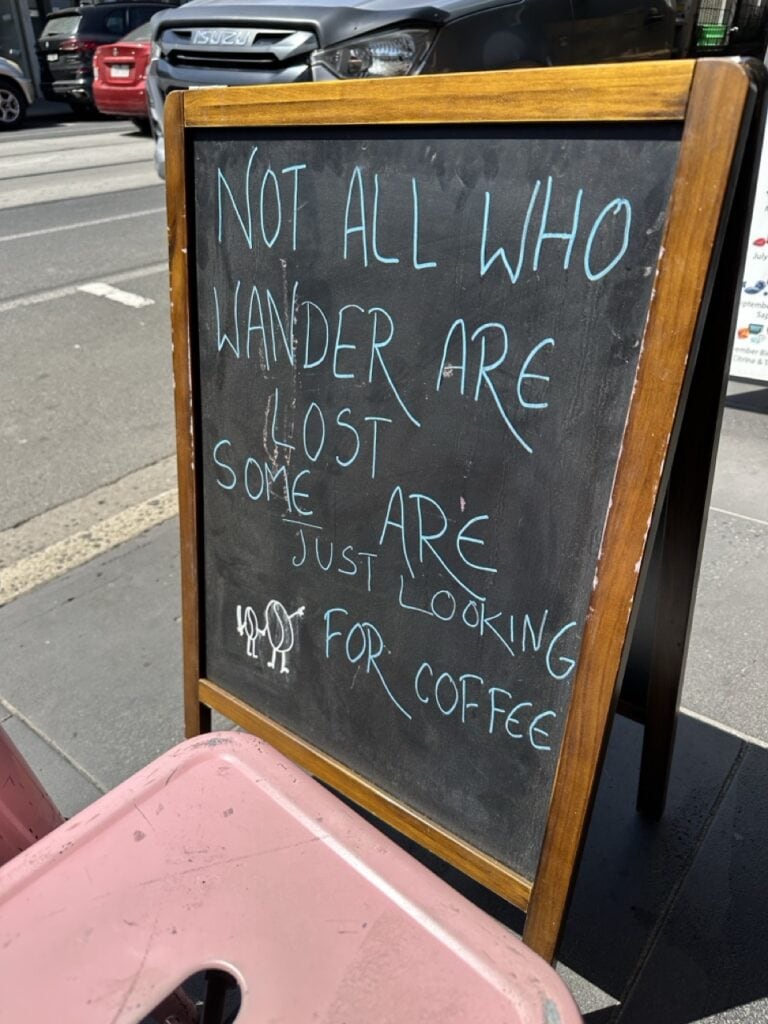 ISUZU
NOT ALL WHO
WANDER ARE
LOST
SOME ARE
JUST LOOKING
FOR COFFEE
July